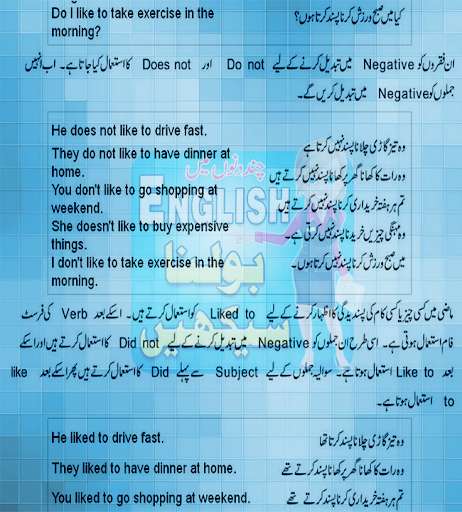 Do I like to take exercise in the morning?
کیا میں صبح ورزش کرنا پسند کرتا ہوں؟
ان فقروں کو Negative میں تبدیل کرنے کے لیے Do not اور Does not کا استعمال کیا جاتا ہے۔ اب انہیں
جملوں کو Negative میں تبدیل کریں گے۔
He does not like to drive fast.
وہ تیز گاڑی چلانا پسند نہیں کرتا ہے
They do not like to have dinner at home.
وہ رات کا کھانا گھر پر کھانا پسند نہیں کرتے ہیں
You don't like to go shopping at weekend.
تم ہر ہفتہ خریداری کرنا پسند نہیں کرتے ہیں
She doesn't like to buy expensive things.
وہ مہنگی چیزیں خریدنا پسند نہیں کرتی ہے۔
I don't like to take exercise in the morning.
میں صبح ورزش کرنا پسند نہیں کرتا ہوں۔
چند دنوں میں
ENGLISH
بولنا
سیکھیں
ماضی میں کسی چیز یا کسی کام کی پسندیدگی کا اظہار کرنے کے لیے Liked to کو استعمال کرتے ہیں۔ اسکے بعد Verb کی فرسٹ
فام استعمال ہوتی ہے۔ اسی طرح ان جملوں کو Negative میں تبدیل کرنے کے لیے Did not کا استعمال کرتے ہیں اور اسکے
بعد Like to استعمال ہوتا ہے۔ سوالیہ جملوں کے لیے Subject سے پہلے Did کا استعمال کرتے ہیں پھر اسکے بعد like
to استعمال ہوتا ہے۔
He liked to drive fast.
وہ تیز گاڑی چلانا پسند کرتا تھا
They liked to have dinner at home.
وہ رات کا کھانا گھر پر کھانا پسند کرتے تھے
You liked to go shopping at weekend.
تم ہر ہفتہ خریداری کرنا پسند کرتے تھے